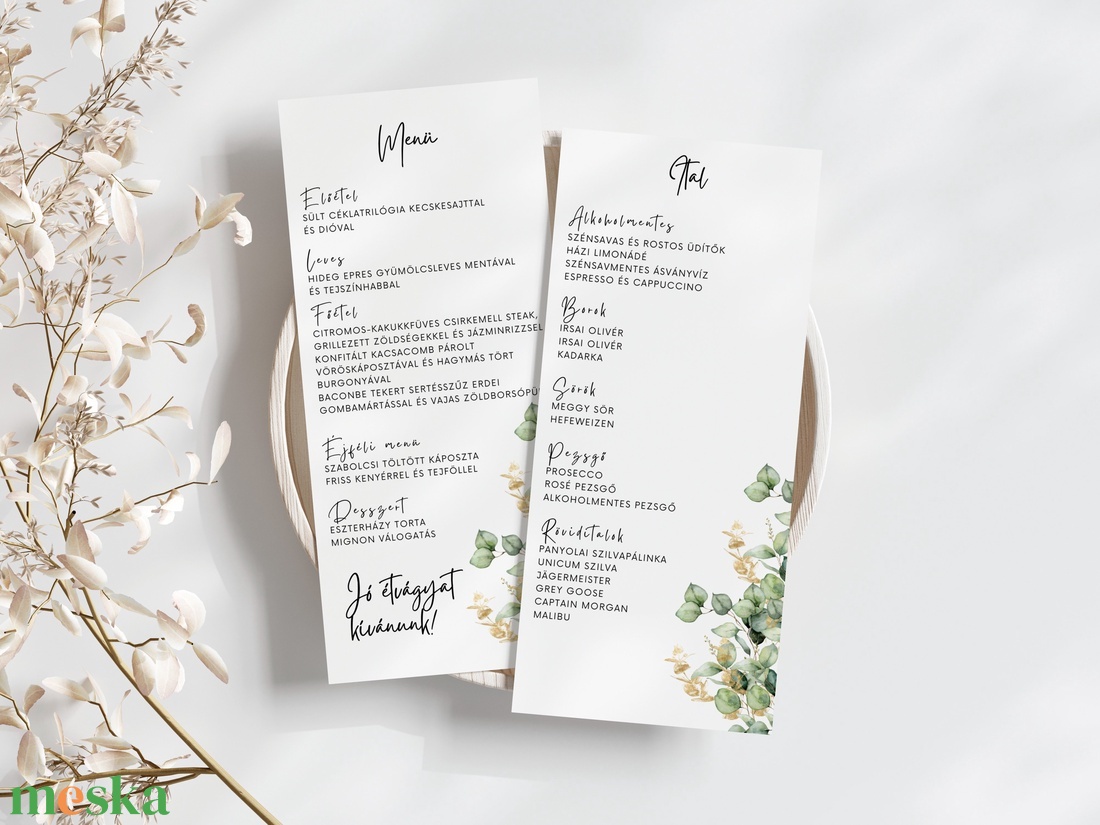 Menü
Előétel
SÜLT CÉKLATRILÓGIA KECSKESAJTTAL
ÉS DIÓVAL
Leves
HIDEG EPRES GYÜMÖLCSLEVES MENTÁVAL
ÉS TEJSZÍNHABBAL
Főétel
CITROMOS-KAKUKKFÜVES CSIRKEMELL STEAK,
GRILLEZETT ZÖLDSÉGEKKEL ÉS JÁZMINRIZZSEL
KONFITÁLT KACSACOMB PÁROLT
VÖRÖSKÁPOSZTÁVAL ÉS HAGYMÁS TÖRT
BURGONYÁVAL
BACONBE TEKERT SERTÉSSZŰZ ERDEI
GOMBAMÁRTÁSSAL ÉS VAJAS
Éjféli menü
SZABOLCSI TÖLTÖTT KÁPOSZTA
FRISS KENYÉRREL ÉS TEJFÖLLEL
Desszert
ESZTERHÁZY TORTA
MIGNON VÁLOGATÁS
Jó étvágyat
kívánunk!
Ital
Alkoholmentes
SZÉNSAVAS ÉS ROSTOS ÜDÍTŐK
HÁZI LIMONÁDÉ
SZÉNSAVMENTES ÁSVÁNYVÍZ
ESPRESSO ÉS CAPPUCCINO
Borok
IRSAI OLIVÉR
IRSAI OLIVÉR
KADARKA
Sörök
MEGGY SÖR
HEFEWEIZEN
Pezsgő
PROSECCO
ROSÉ PEZSGŐ
ALKOHOLMENTES PEZSGŐ
Röviditalok
PANYOLAI SZILVAPÁLINKA
UNICUM SZILVA
JÄGERMEISTER
GREY GOOSE
CAPTAIN MORGAN
MALIBU
meska